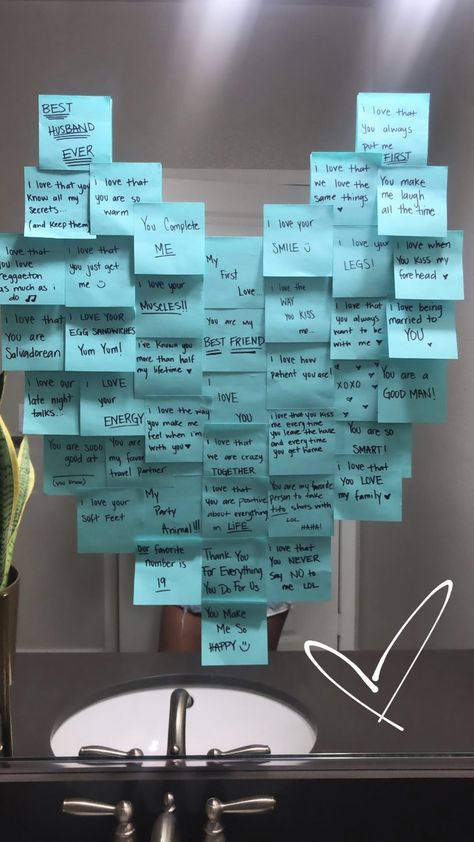 BEST
HUSBAND
EVER
i love that
you always
put me
FIRST
i love that you
know all my
secrets...
(and keep them)
i love that
you are so
warm
i love that
we love the
same things
You make
me laugh
all the time
You Complete
ME
i love your
SMILE
i love that
you love
reggaeton
as much as i
do
i love that
you just get
me
My
First
Love...
i love your
LEGS!
i love when
you kiss my
forehead
i love your
MUSCLES!!
i love the
WAY
you KISS
me...
i love that
You are
Salvadorean
I LOVE YOUR
EGG SANDWICHES
Yum Yum!
You are my
BEST FRIEND
i love that
you always
want to be
with me
i love being
married to
YOU
i've known you
more than half
my lifetime
i love how
patient you are!
i love our
late night
talks...
i LOVE
your
ENERGY
i LOVE
YOU
XOXO
You are a
GOOD MAN!
i love the way
you make me
feel when i'm
with you
i love that you kiss
me every time
you leave the house
and every time
you get home
You are sooo
good at
(you know)
You are
my favorite
travel partner
i love that
we are crazy
TOGETHER
You are so
SMART!
i love your
Soft Feet
My
Party
Animal!!!
i love that
you are positive
about everything
in LIFE
You are my favorite
person to take
tito shots with
LOL
HAHA!
i love that
You LOVE
my family
Our favorite
number is
19
Thank You
For Everything
You Do For Us
i love that
you NEVER
say NO to
me LOL
You Make
Me So
HAPPY